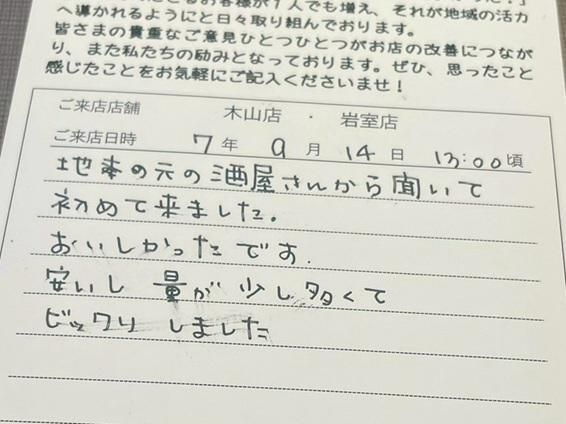 へ導かれるようにと日々取り組んでおります。
皆さまの貴重なご意見ひとつひとつがお店の改善につなが
り、また私たちの励みとなっております。ぜひ、思ったこと
感じたことをお気軽にご記入くださいませ！
ご来店店舗 木山店 ・ 岩室店
ご来店日時 7年 9月 14日 13:00頃
地本の元の酒屋さんから聞いて
初めて来ました。
おいしかったです.
安いし 量が少し多くて
ビックリしました